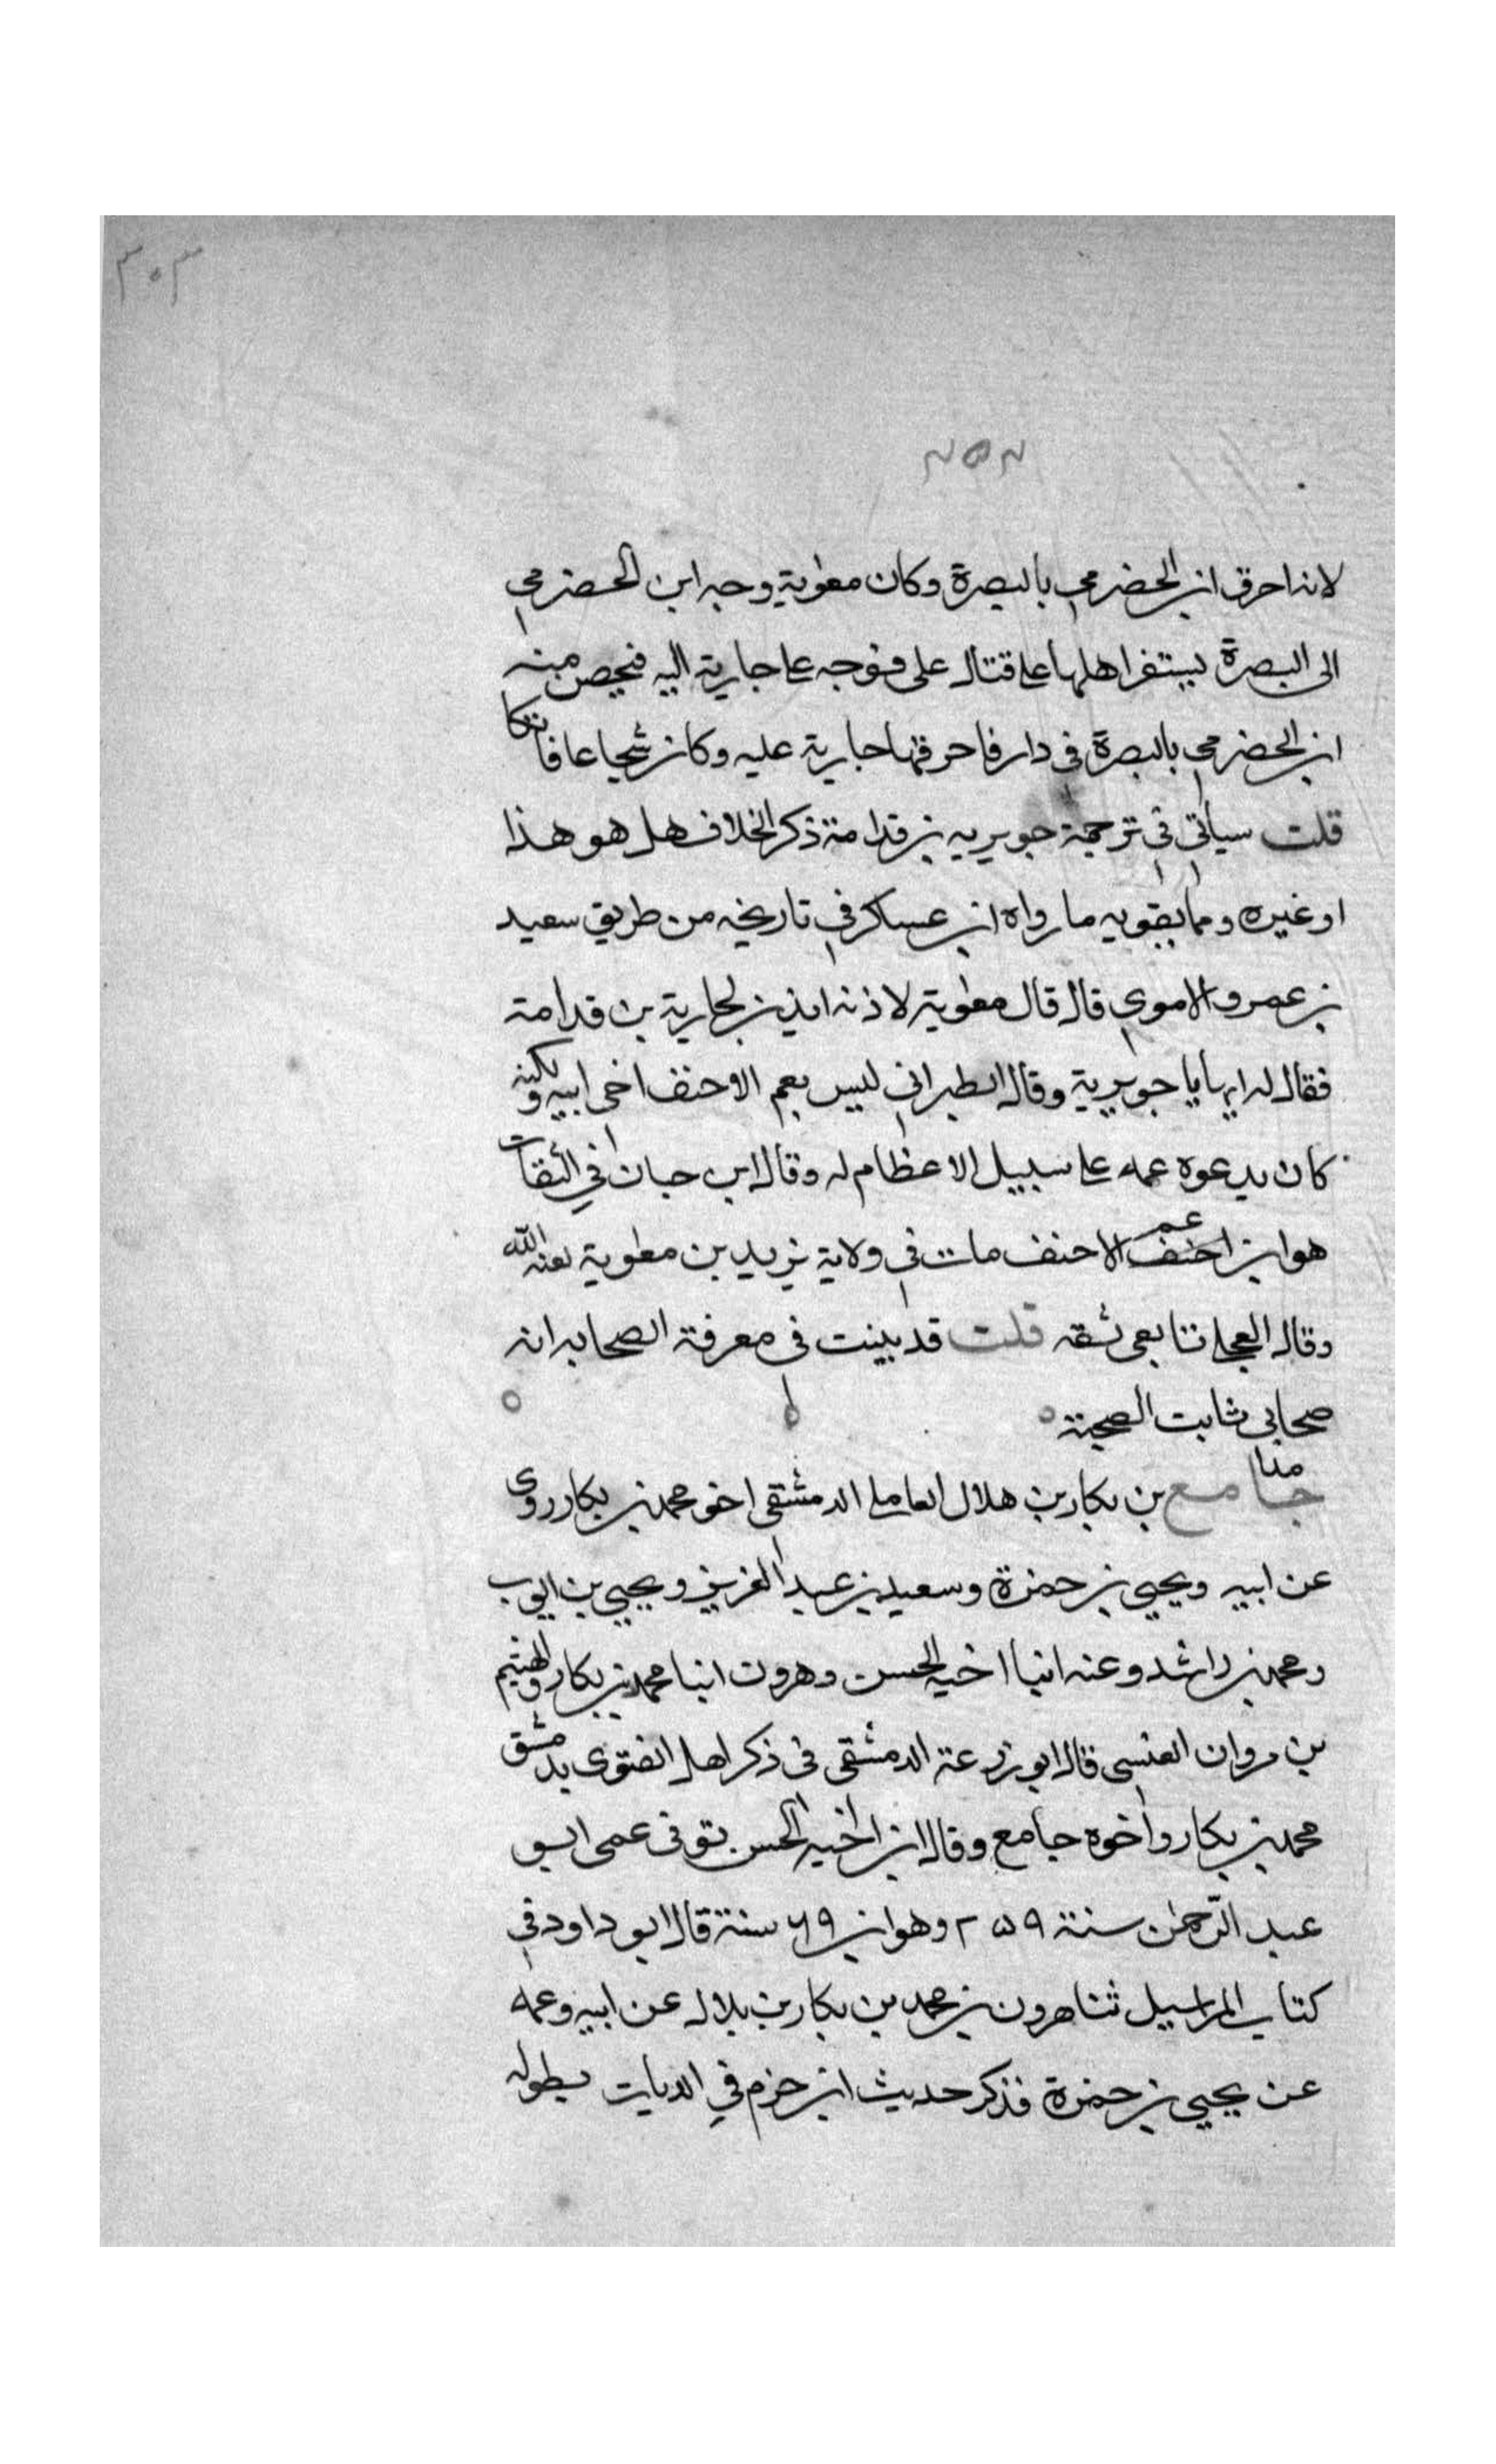 ٣٠٣
٢٥٢
لانه احرق ابن الحضرمي بالبصرة وكان معوية وجه ابن الحضرمي
الى البصرة يستفز اهلها على قتال علي فوجه علي جارية اليه فتحصن منه
ابن الحضرمي بالبصرة في دار فاحرقها جارية عليه وكان شجاعا فاتكا
قلت سياتي في ترجمة جويريه بن قدامة ذكر الخلاف هل هو هذا
او غيره ومما يقويه ما رواه ابن عساكر في تاريخه من طريق سعيد
بن عمرو الاموي قال قال معوية لاذنه ايذن لجارية بن قدامة
فقال له ايها يا جويرية وقال الطبراني ليس بعم الاحنف اخى ابيه ولكنه
كان يدعوه عمه على سبيل الاعظام له وقال ابن حبان في الثقات
هو ابن عم الاحنف مات في ولاية يزيد بن معوية لعنه الله
وقال العجلي تابعى ثقه قلت قد بينت في معرفة الصحابه انه
صحابي ثابت الصحبة
جامع بن بكار بن هلال العاملي الدمشقى اخو محمد بن بكار روى
عن ابيه ويحيى بن حمزة وسعيد بن عبد العزيز ويحيى بن ايوب
ومحمد بن راشد وعنه ابنا اخيه الحسن وهرون ابنا محمد بن بكار والهيثم
بن مروان العنسى قال ابو زرعة الدمشقى في ذكر اهل الفتوى بدمشق
محمد بن بكار واخوه جامع وقال ابن اخيه الحسن توفى عمى ابو
عبد الرحمن سنة ٢٥٩ وهو ابن ٦٩ سنة قال ابو داود في
كتاب المراسيل ثنا هرون بن محمد بن بكار بن بلال عن ابيه وعمه
عن يحيى بن حمزة فذكر حديث ابن حزم في الديات بطوله